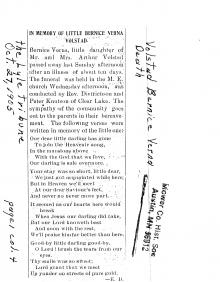 IN MEMORY OF LITTLE BERNICE VERNA
VOLSTAD.
Bernice Verna, little daughter of
Mr. and Mrs. Arthur Volstad
passed away last Sunday afternoon
after an illness of about ten days.
The funeral was held in the M. E.
church Wednesday afternoon, was
conducted by Rev. Districtson and
Peter Knutson of Clear Lake. The
sympathy of the community goes
out to the parents in their bereave-
ment. The following verses were
written in memory of the little one:
Our dear little darling has gone
To join the Heavenly song,
In the mansions above
With the God that we love,
Our darling is safe overmore.
Your stay was so short, little dear,
We just got acquainted while here,
But in Heaven we'll meet
At our dear Saviour's feet,
And never no more part.
It seemed as our hearts here would
break
When Jesus our darling did take,
But our Lord knoweth best
And soon with the rest,
We'll praise his the better than here.
Good-by little darling good-by,
O Lord! brush the tears from our
eyes.
Thy smile was so sweet;
Lord grant that we meet
Up yonder on streets of pure gold.
—E. D.
The Lyle Tribune
Oct. 23, 1903
page 1 col 4
Volstad, Bernice Verna
Death
MOWER CO HIST SOC
AUSTIN, MN 55912